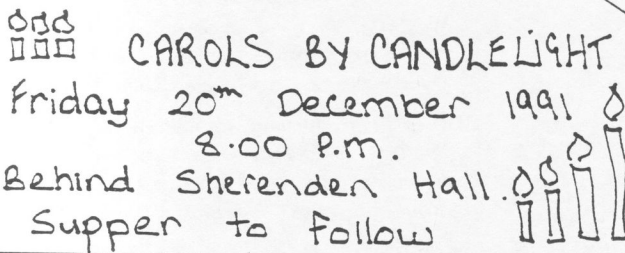 CAROLS BY CANDLELIGHT
Friday 20th December 1991
8.00 P.m.
Behind Sherenden Hall.
Supper to follow